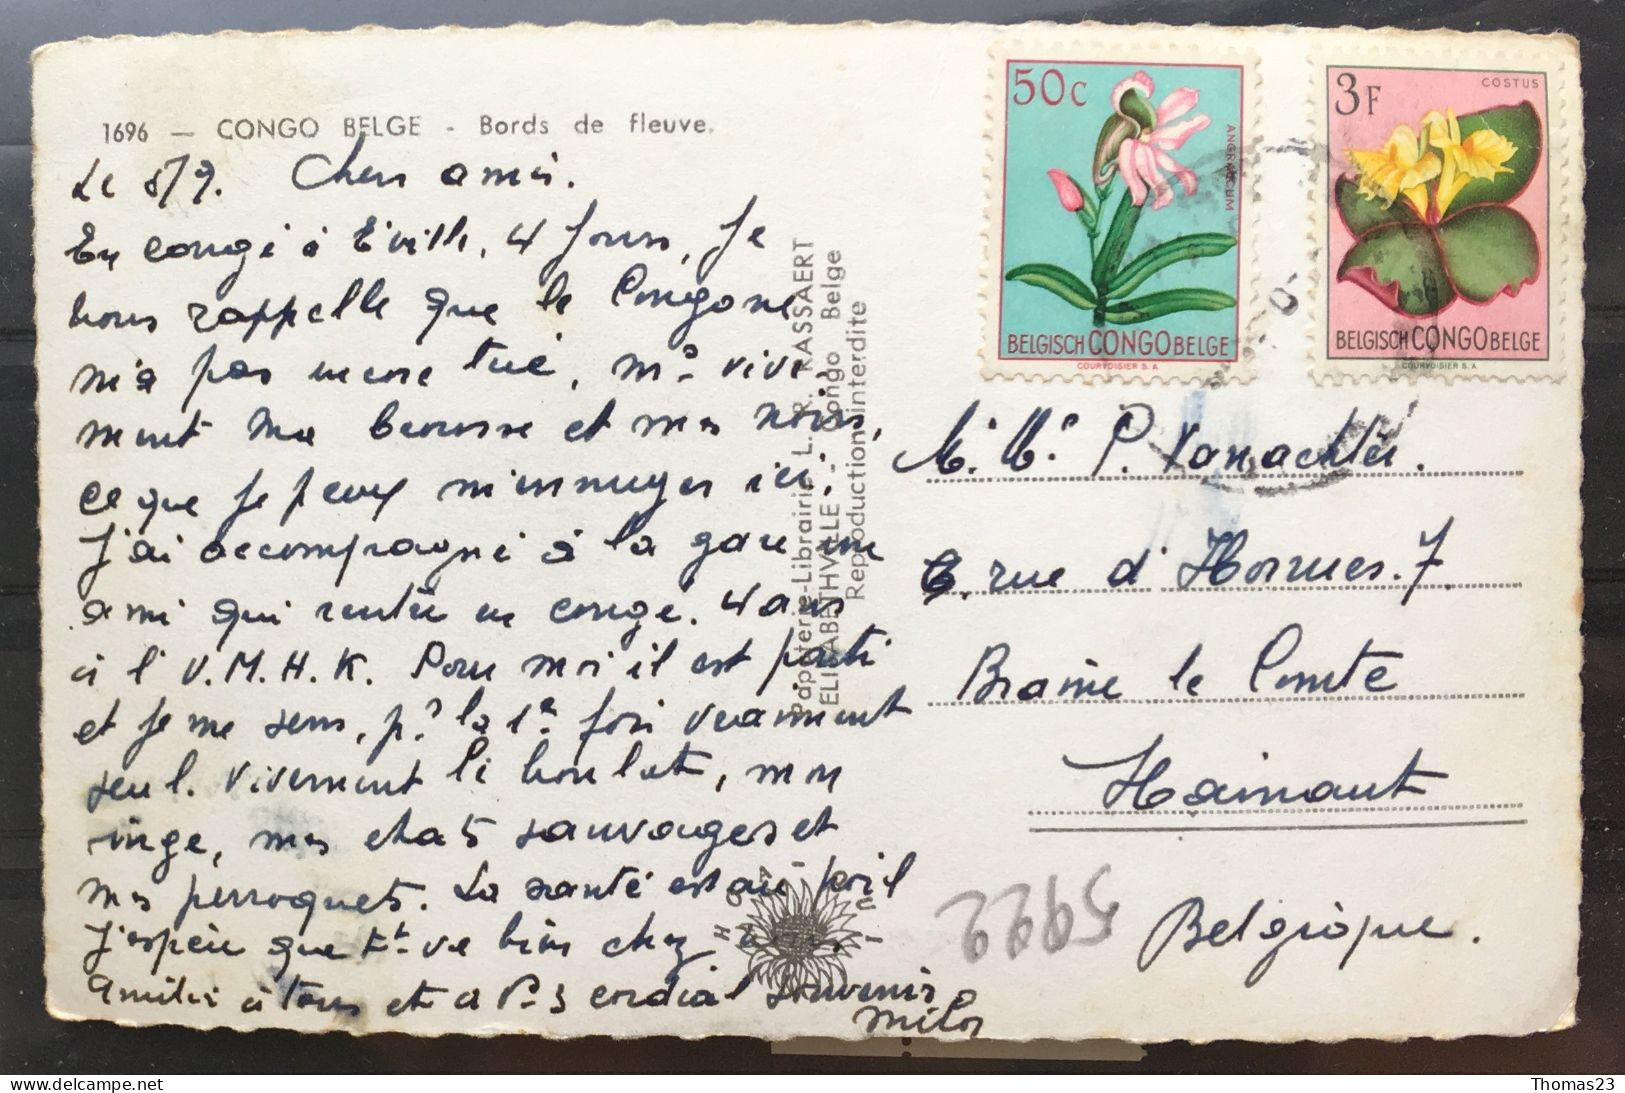 1696 — CONGO BELGE - Bords de fleuve.
Le 8/7. Chers amis.
En congé à E'ville, 4 jours, Je
vous rappelle que le Congo ne
m'a pas encore tué, mais vive-
ment ma brousse et mes noirs,
ce que je peux m'ennuyer ici.
J'ai accompagné à la gare un
ami qui rentre en congé. 4 ans
à l'U.M.H.K. Pour moi il est parti
et je me sens, pr la 1re fois vraiment
seul. Vivement le boulot, mon
singe, mes chats sauvages et
mes perroquets. La santé est au poil
J'espère que tt va bien chez
Amitiés à tous et à cordial souvenir
Papeterie-Librairie L. R. RASSAERT
ELISABETHVILLE - Congo Belge
Reproduction interdite
50c
ANGRAECUM
BELGISCH CONGO BELGE
COURVOISIER S.A.
3F
COSTUS
BELGISCH CONGO BELGE
COURVOISIER S.A.
M. Me P. Vanachter.
rue d'Horrues. 7.
Braine le Comte
Hainaut
Belgique.
5922
Thomas23